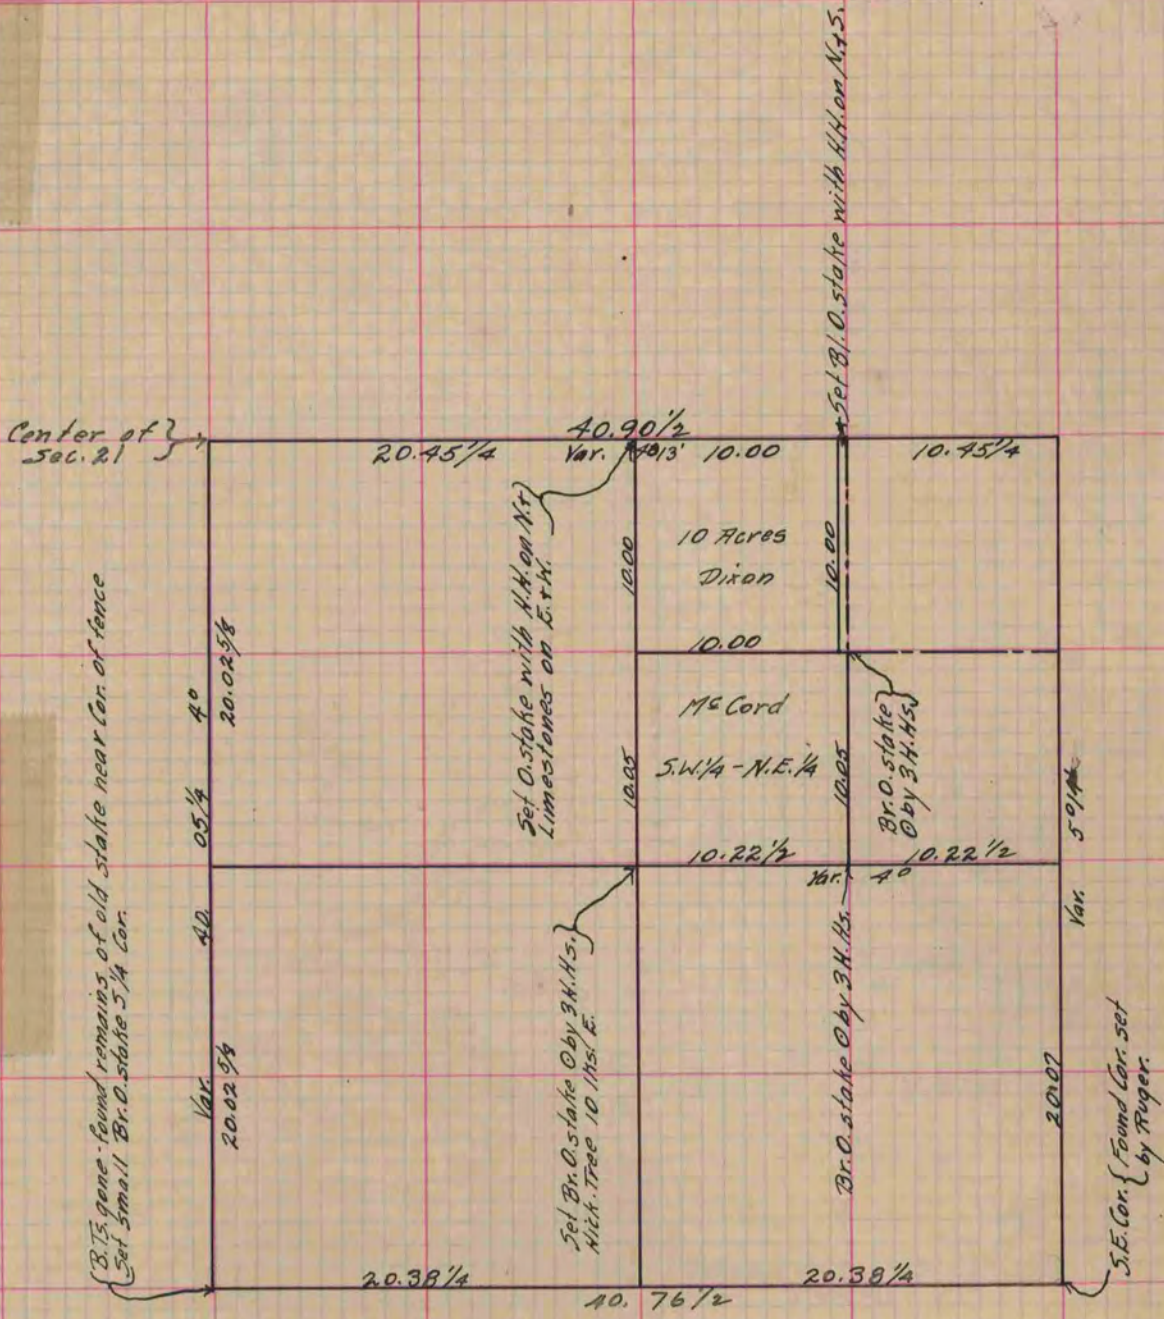 Set Bl. O. stake with H.H. on N.+S.
Center of
Sec. 21
40.90 1/2
20.45 1/4
Var. 4° 13'
10.00
10.45 1/4
Set O. stake with H.H. on N.+S.
Limestones on E.+W.
10.00
10 Acres
Dixon
10.00
10.00
20.02 5/8
Var. 40. 05 1/4 4°
10.05
McCord
S.W. 1/4 - N.E. 1/4
10.05
Br. O. stake
O by 3 H.Hs.
10.22 1/2
10.22 1/2
Var. 4°
Var. 5° 14'
B.Ts. gone - found remains of old stake near Cor. of fence
Set small Br. O. stake S 1/4 Cor.
20.02 5/8
Set Br. O. stake O by 3 H.Hs.
Hick. Tree 10 lks. E.
Br. O. stake O by 3 H.Hs.
20.07
S.E. Cor. { Found Cor. set
by Ruger.
20.38 1/4
20.38 1/4
40. 76 1/2